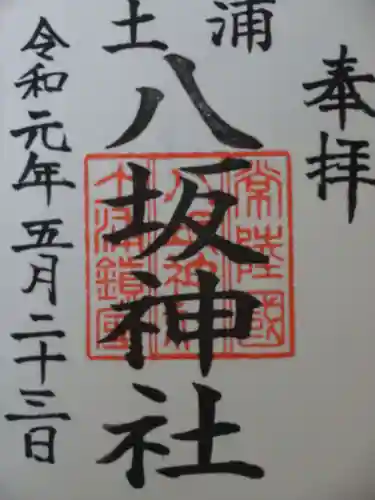 奉拝
土浦
八坂神社
常陸國
土浦鎮守
令和元年五月二十三日